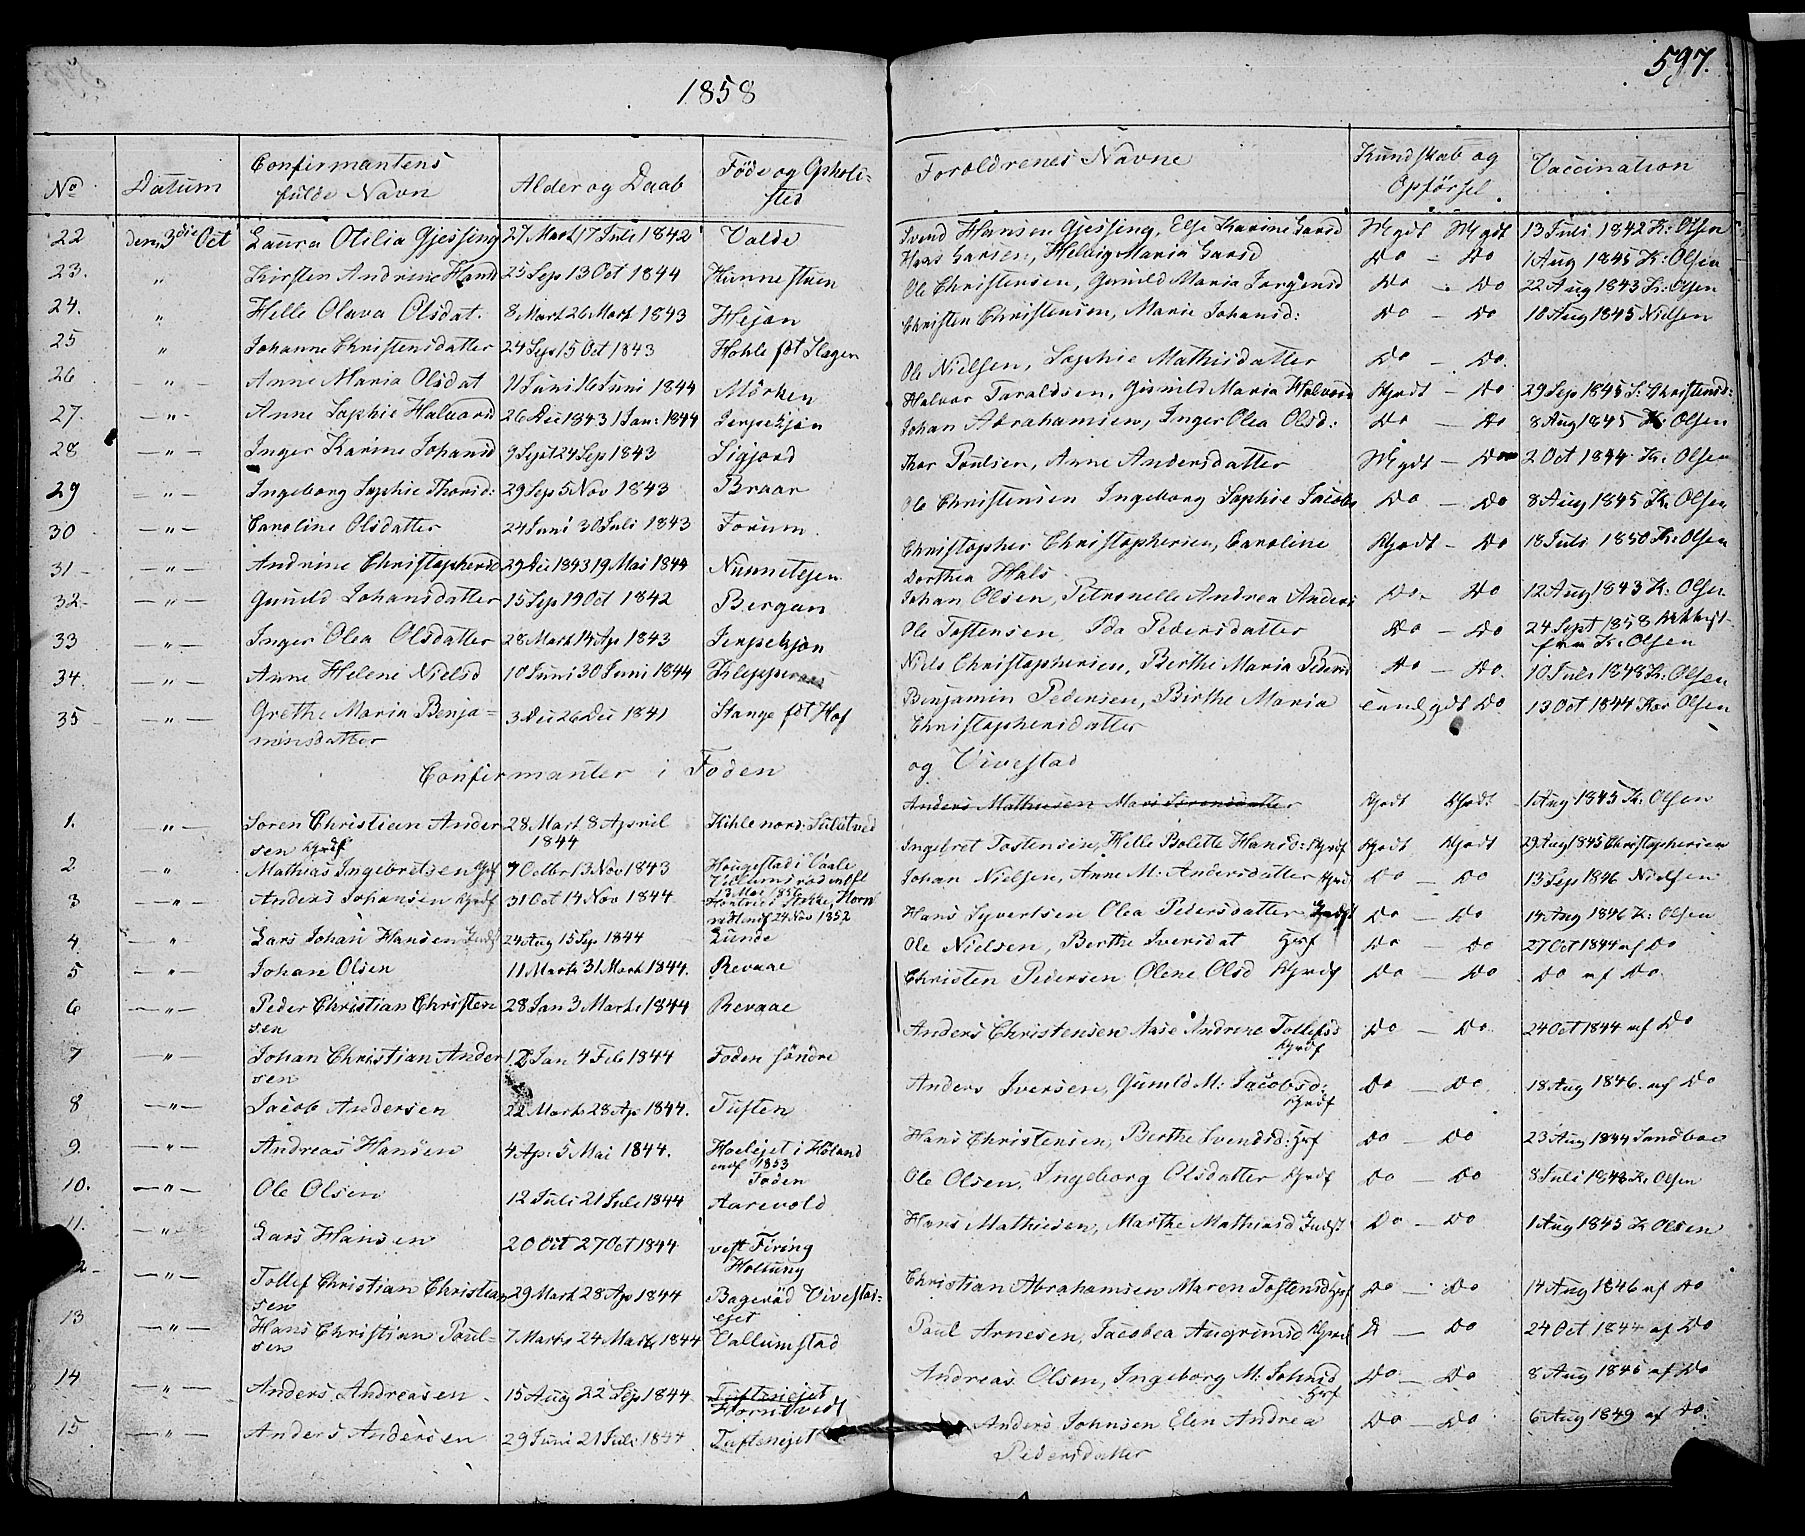 1858
597.
No
Datum
Confirmantens fulde Navn
Alder og Daab
Føde og Opholdsted
Forældrenes Navne
Kundskab og Opførsel
Vaccination
22 den 3die Oct Laura Otilia Gjessing 27 Mart 17 Juli 1842 Valde Svend Hansen Gjessing, Else Karine Larsd Mgdt Mgdt 13 Juli 1842 K: Olsen
23. " Kirsten Andrine Hansd 25 Sep 13 Oct 1844 Hunnestuen Hans Larsen, Helvig Maria Larsd Do - Do 1 Aug 1845 K: Olsen
24. " Helle Olava Olsdat. 8 Mart 26 Mart 1843 Hejan Ole Christensen, Gunild Maria Jørgensd Do - Do 22 Aug 1843 K: Olsen
25 " Johanne Christensdatter 24 Sep 15 Oct 1843 Hohle føt Slagen Christen Christensen, Marie Johansd: Do - Do 10 Aug 1845 Nielsen
26 " Anne Maria Olsdat 11 Juni 16 Juni 1844 Mörken Ole Nielsen, Sophie Mathisdatter Do - Do.
27. " Anne Sophie Halvorsd 26 Dec 1843 1 Jan: 1844 Jerpekjøn Halvor Taraldsen, Gunild Maria Halvorsd Gjodt - Do 29 Sep 1845 S. Christensd:
28 " Inger Karine Johansd 9 Sept 24 Sep 1843 Sigjord Johan Abrahamsen, Inger Olea Olsd: Do - Do 8 Aug 1845 K Olsen
29 " Ingeborg Sophie Thorsd: 29 Sep 5 Nov 1843 Braar Thor Poulsen, Anne Andersdatter Mgdt - Do 2 Oct 1844 K: Olsen
30 " Caroline Olsdatter 24 Juni 30 Juli 1843 Forum. Ole Christensen Ingeborg Sophie Jacobs Do - Do 8 Aug 1845 K Olsen
31 " Andrine Christophersd 29 Dec 1843 19 Mai 1844 Nunnetejen Christopher Christophersen, Caroline Dorthea Hals Gjodt - Do 18 Juli 1850 K: Olsen
32 " Gunild Johansdatter 15 Sep 19 Oct 1842 Bergan Johan Olsen, Petronelle Andrea Anders Do. Do 12 Aug 1843 K. Olsen
33 " Inger Olea Olsdatter 28 Mart 14 Ap 1843 Jerpekjøn Ole Tostensen, Ida Pedersdatter Do - Do 24 Sept 1858 fra K: Olsen
34. " Anne Helene Nielsd 10 Juni 30 Juni 1844 Klepperaas Niels Christophersen, Berthe Maria Pedersd Do - Do. 10 Juli 1848 K: Olsen
35 " Grethe Maria Benjaminsdatter 3 Dec 26 Dec 1841 Stange føt Hof Benjamin Pedersen, Birthe Maria Christophersdatter Do. 13 Oct 1844 Kar Olsen
Confirmanter i Foden og Vivestad
1. " Søren Christian Andersen 28 Mart 8 April 1844 Hihle nord: Anders Mathisen Mari Sørensdatter Gjodt Gjodt 1 Aug 1845 K: Olsen
2 " Mathias Ingebretsen 7 Octbr 13 Nov 1843 Hougestad i Vaale 13 Mai 1856 Ingebret Tostensen, Helle Bolette Hansd: Gjodt Gjodt 29 Aug 1845 Christophersen
3 " Anders Johansen 31 Oct 14 Nov 1844 24 Nov 1852 Johan Nielsen, Anne M: Andersdatter Do - Do 13 Sep 1846 Nielsen
4. " Lars Johan Hansen 24 Aug 15 Sep 1844 Lunde Hans Syvertsen Olea Pedersdatter Do - Do 14 Aug 1846 K: Olsen
5 " Johan Olsen 11 Mart 31 Mart 1844. Revaae Ole Nielsen, Berthe Iversdat Do - Do 27 Oct 1844 af Do
6 " Peder Christian Christensen 28 Jan 3 Marts 1844 Revaae Christen Pedersen Olene Olsd Do - Do Do af Do.
7 " Johan Christian Andersen 12 Jan 4 Feb 1844 Foden søndre Anders Christensen Aase Andrine Tollefsd Do - Do. 24 Oct 1844 af Do
8 " Jacob Andersen 22 Marts 28 Ap 1844. Tuften Anders Iversen, Gunild M: Jacobsd: Do - Do. 18 Aug 1846. af Do
9. " Andreas Hansen 4 Ap. 5 Mai 1844. Hoelejet i Höland 1853 Foden Hans Christensen, Berthe Svendsd: Do - Do 23 Aug 1844 Sandboe
10. " Ole Olsen 12 Juli 21 Juli 1844 Aarevold Ole Olsen, Ingeborg Olsdatter Do - Do 8 Juli 1848 K. Olsen
11. " Lars Hansen 20 Oct 27 Oct 1844 vest Firing Holtung Hans Mathiesen, Marthe Mathiasd Do - Do 1 Aug 1845 K Olsen
" Tollef Christian Christiansen 29 Mart 28 Ap 1844 Bagerød Vivestadejet Christian Abrahamsen Maren Tostensd Do - Do 14 Aug 1846 af Do
13 " Hans Christian Poulsen 7 Marts 24 Marts 1844 Vallumstad Poul Arnesen, Jacobea Augrimsd D - Do 24 Oct 1844 af Do
14 " Anders Andreasen 15 Aug 22 Sep 1844 Tuftenejet Hornstvedt Andreas Olsen, Ingeborg M: Johnsd Do - Do 8 Aug 1845 af Do
15 " Anders Andersen 29 Juni 21 Juli 1844 Tuftenejet Anders Johnsen Elen Andrea Pedersdatter Do - Do 6 Aug 1849 af Do.